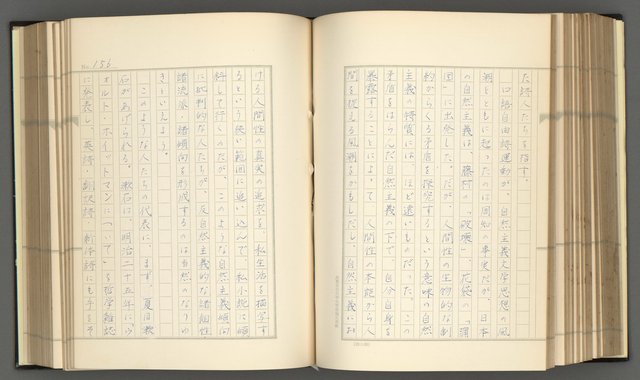 た詩人たちを指す。
口語自由詩運動が、自然主義文学思想の風
潮とともに起ったのは周知の事実だが、日本
の自然主義は、藤村の「破戒」、花袋の「蒲
団」に出発した。だが、人間性の生物的な制
約からくる矛盾を探究するという意味の自然
主義の特質には、ほど遠いものだった。この
矛盾をはらんだ自然主義の下で、自分自身を
暴露することによって、人間性の本能から人
間を捉える風潮をかもしだし、自然主義にお
No. 156
ける人間性の真実の追求を、私生活を描写す
るという狭い範囲に追い込んで、私小説に傾
斜して行くのだが、このような自然主義傾向
に批判的な人たちが、反自然主義的な諸個性
諸流派・諸傾向を形成するのは当然のなりゆ
きといえよう。
このような人たちの代表に、まず、夏目漱
石があげられる。漱石は、明治二十五年に「ウ
オルト・ホイットマンについて」を哲学雑誌
に発表し、英詩・翻訳詩、新体詩にも手をそ